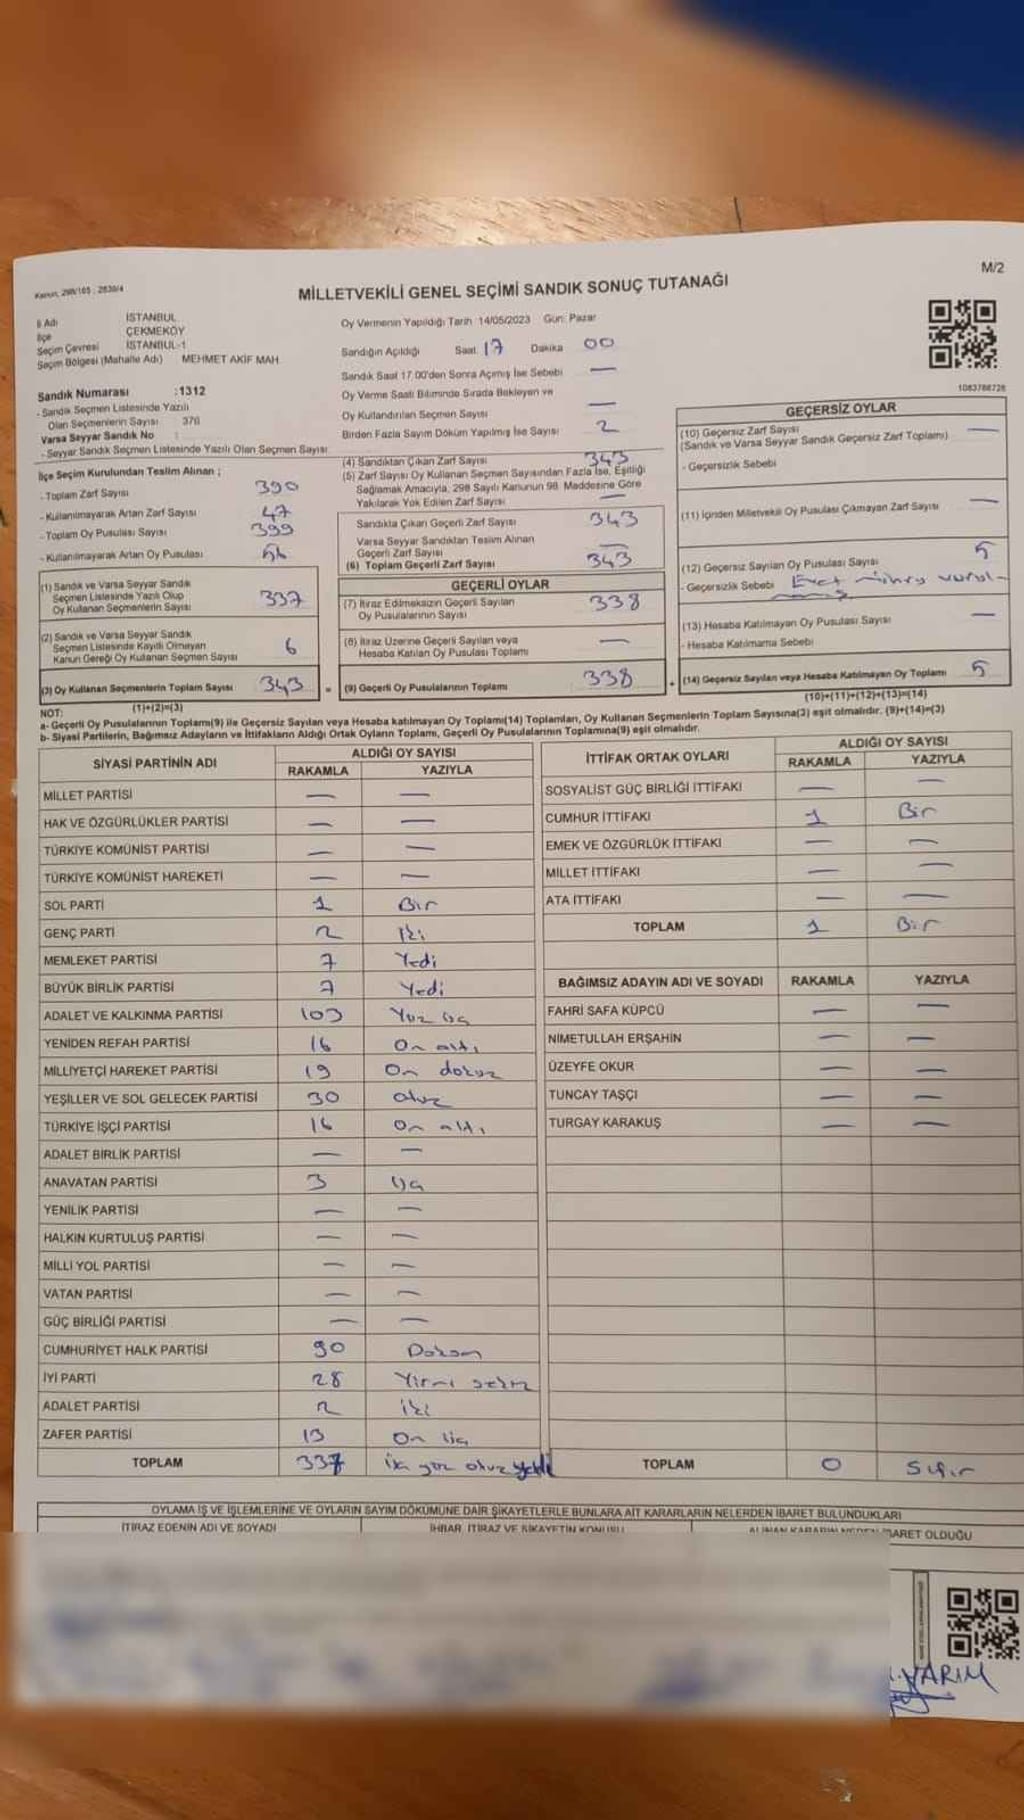 Kanun; 298/105 ; 2839/4
M/2
MİLLETVEKİLİ GENEL SEÇİMİ SANDIK SONUÇ TUTANAĞI
İl Adı İSTANBUL
İlçe ÇEKMEKÖY
Seçim Çevresi İSTANBUL-1
Seçim Bölgesi (Mahalle Adı) MEHMET AKİF MAH.
Sandık Numarası :1312
- Sandık Seçmen Listesinde Yazılı
Olan Seçmenlerin Sayısı 376
Varsa Seyyar Sandık No :
- Seyyar Sandık Seçmen Listesinde Yazılı Olan Seçmen Sayısı:
İlçe Seçim Kurulundan Teslim Alınan ;
- Toplam Zarf Sayısı 390
- Kullanılmayarak Artan Zarf Sayısı 47
- Toplam Oy Pusulası Sayısı 399
- Kullanılmayarak Artan Oy Pusulası 56
(1) Sandık ve Varsa Seyyar Sandık
Seçmen Listesinde Yazılı Olup
Oy Kullanan Seçmenlerin Sayısı 337
(2) Sandık ve Varsa Seyyar Sandık
Seçmen Listesinde Kayıtlı Olmayan
Kanun Gereği Oy Kullanan Seçmen Sayısı 6
(3) Oy Kullanan Seçmenlerin Toplam Sayısı 343
(1)+(2)=(3)
Oy Vermenin Yapıldığı Tarih :14/05/2023 Gün: Pazar
Sandığın Açıldığı Saat 17 Dakika 00
Sandık Saat 17:00'den Sonra Açımış İse Sebebi —
Oy Verme Saati Bitiminde Sırada Bekleyen ve
Oy Kullandırılan Seçmen Sayısı —
Birden Fazla Sayım Döküm Yapılmış İse Sayısı 2
(4) Sandıktan Çıkan Zarf Sayısı 343
(5) Zarf Sayısı Oy Kullanan Seçmen Sayısından Fazla İse, Eşitliği
Sağlamak Amacıyla, 298 Sayılı Kanunun 98. Maddesine Göre
Yakılarak Yok Edilen Zarf Sayısı —
Sandıkta Çıkan Geçerli Zarf Sayısı 343
Varsa Seyyar Sandıktan Teslim Alınan
Geçerli Zarf Sayısı —
(6) Toplam Geçerli Zarf Sayısı 343
GEÇERLİ OYLAR
(7) İtiraz Edilmeksizin Geçerli Sayılan
Oy Pusulalarının Sayısı 338
(8) İtiraz Üzerine Geçerli Sayılan veya
Hesaba Katılan Oy Pusulası Toplamı —
= (9) Geçerli Oy Pusulalarının Toplamı 338
1083788728
GEÇERSİZ OYLAR
(10) Geçersiz Zarf Sayısı —
(Sandık ve Varsa Seyyar Sandık Geçersiz Zarf Toplamı)
- Geçersizlik Sebebi
(11) İçinden Milletvekili Oy Pusulası Çıkmayan Zarf Sayısı —
(12) Geçersiz Sayılan Oy Pusulası Sayısı 5
- Geçersizlik Sebebi Evet mührü vurul-
mamış
(13) Hesaba Katılmayan Oy Pusulası Sayısı —
- Hesaba Katılmama Sebebi
+ (14) Geçersiz Sayılan veya Hesaba Katılmayan Oy Toplamı 5
(10)+(11)+(12)+(13)=(14)
NOT:
a- Geçerli Oy Pusulalarının Toplamı(9) ile Geçersiz Sayılan veya Hesaba katılmayan Oy Toplamı(14) Toplamları, Oy Kullanan Seçmenlerin Toplam Sayısına(3) eşit olmalıdır. (9)+(14)=(3)
b- Siyasi Partilerin, Bağımsız Adayların ve İttifakların Aldığı Ortak Oyların Toplamı, Geçerli Oy Pusulalarının Toplamına(9) eşit olmalıdır.
SİYASİ PARTİNİN ADI ALDIĞI OY SAYISI
RAKAMLA YAZIYLA
MİLLET PARTİSİ — —
HAK VE ÖZGÜRLÜKLER PARTİSİ — —
TÜRKİYE KOMÜNİST PARTİSİ — —
TÜRKİYE KOMÜNİST HAREKETİ — —
SOL PARTİ 1 Bir
GENÇ PARTİ 2 İki
MEMLEKET PARTİSİ 7 Yedi
BÜYÜK BİRLİK PARTİSİ 7 Yedi
ADALET VE KALKINMA PARTİSİ 103 Yüz üç
YENİDEN REFAH PARTİSİ 16 On altı
MİLLİYETÇİ HAREKET PARTİSİ 19 On dokuz
YEŞİLLER VE SOL GELECEK PARTİSİ 30 otuz
TÜRKİYE İŞÇİ PARTİSİ 16 On altı
ADALET BİRLİK PARTİSİ — —
ANAVATAN PARTİSİ 3 Üç
YENİLİK PARTİSİ — —
HALKIN KURTULUŞ PARTİSİ — —
MİLLİ YOL PARTİSİ — —
VATAN PARTİSİ — —
GÜÇ BİRLİĞİ PARTİSİ — —
CUMHURİYET HALK PARTİSİ 90 Doksan
İYİ PARTİ 28 Yirmi sekiz
ADALET PARTİSİ 2 iki
ZAFER PARTİSİ 13 On üç
TOPLAM 337 üç yüz otuz yedi
İTTİFAK ORTAK OYLARI ALDIĞI OY SAYISI
RAKAMLA YAZIYLA
SOSYALİST GÜÇ BİRLİĞİ İTTİFAKI — —
CUMHUR İTTİFAKI 1 Bir
EMEK VE ÖZGÜRLÜK İTTİFAKI — —
MİLLET İTTİFAKI — —
ATA İTTİFAKI — —
TOPLAM 1 Bir
BAĞIMSIZ ADAYIN ADI VE SOYADI RAKAMLA YAZIYLA
FAHRİ SAFA KÜPCÜ — —
NİMETULLAH ERŞAHİN — —
ÜZEYFE OKUR — —
TUNCAY TAŞÇI — —
TURGAY KARAKUŞ — —
TOPLAM 0 Sıfır
OYLAMA İŞ VE İŞLEMLERİNE VE OYLARIN SAYIM DÖKÜMÜNE DAİR ŞİKAYETLERLE BUNLARA AİT KARARLARIN NELERDEN İBARET BULUNDUKLARI
İTİRAZ EDENİN ADI VE SOYADI İHBAR, İTİRAZ VE ŞİKAYETİN KONUSU ALINAN KARARIN NEDEN İBARET OLDUĞU
YARIM